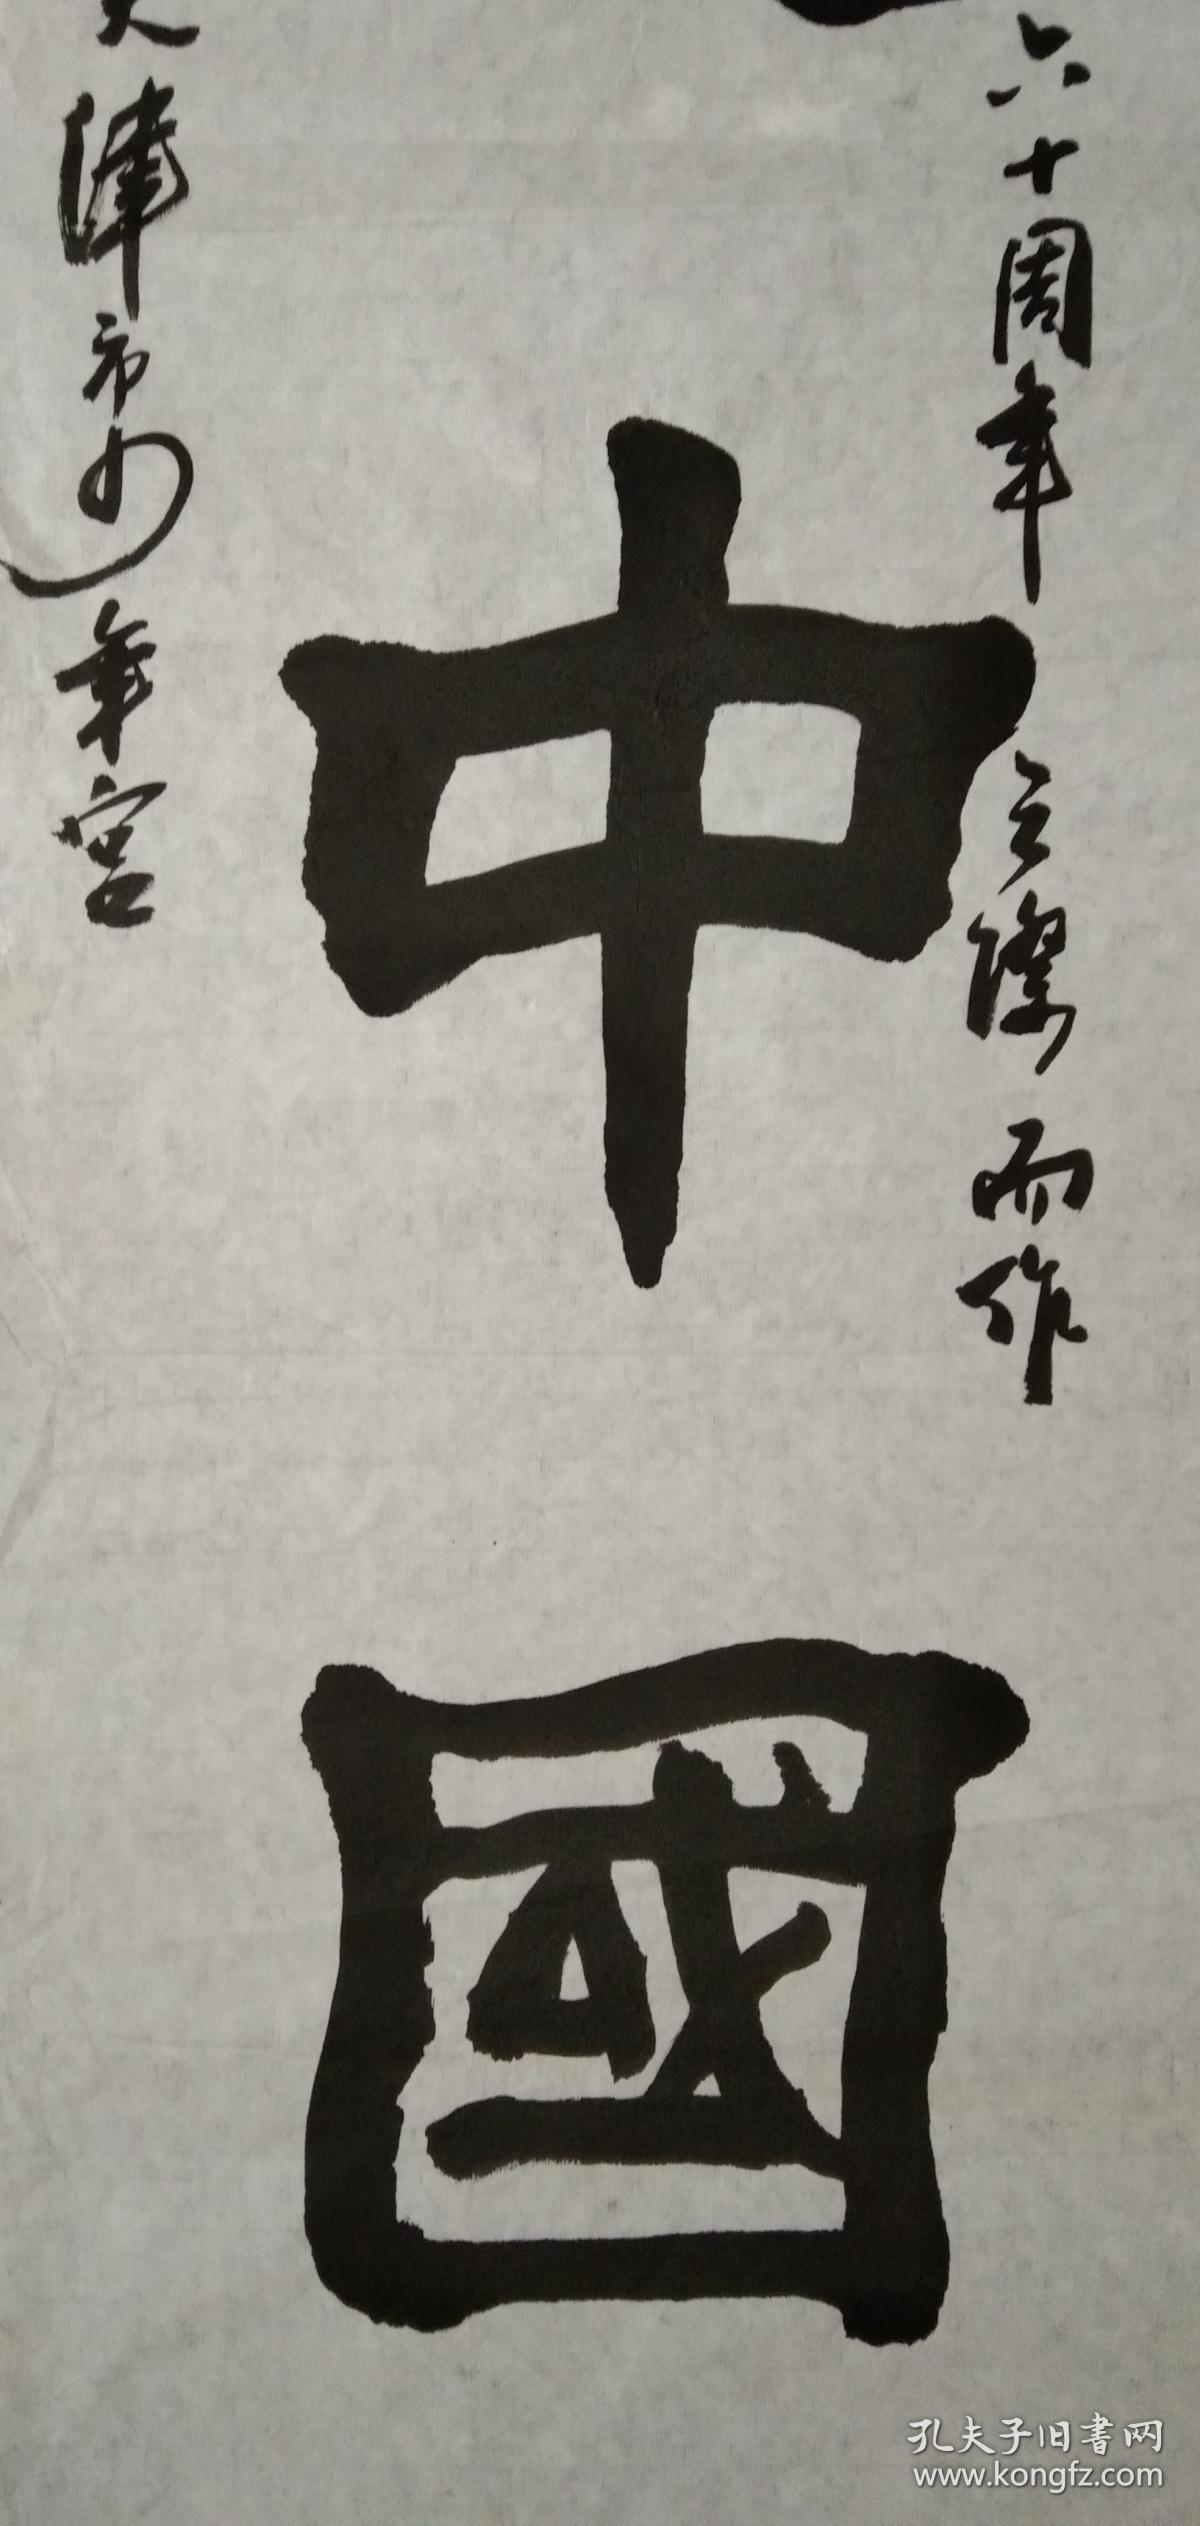 六十周年之際而作
中國
天津市少年宮
孔夫子旧书网
www.kongfz.com